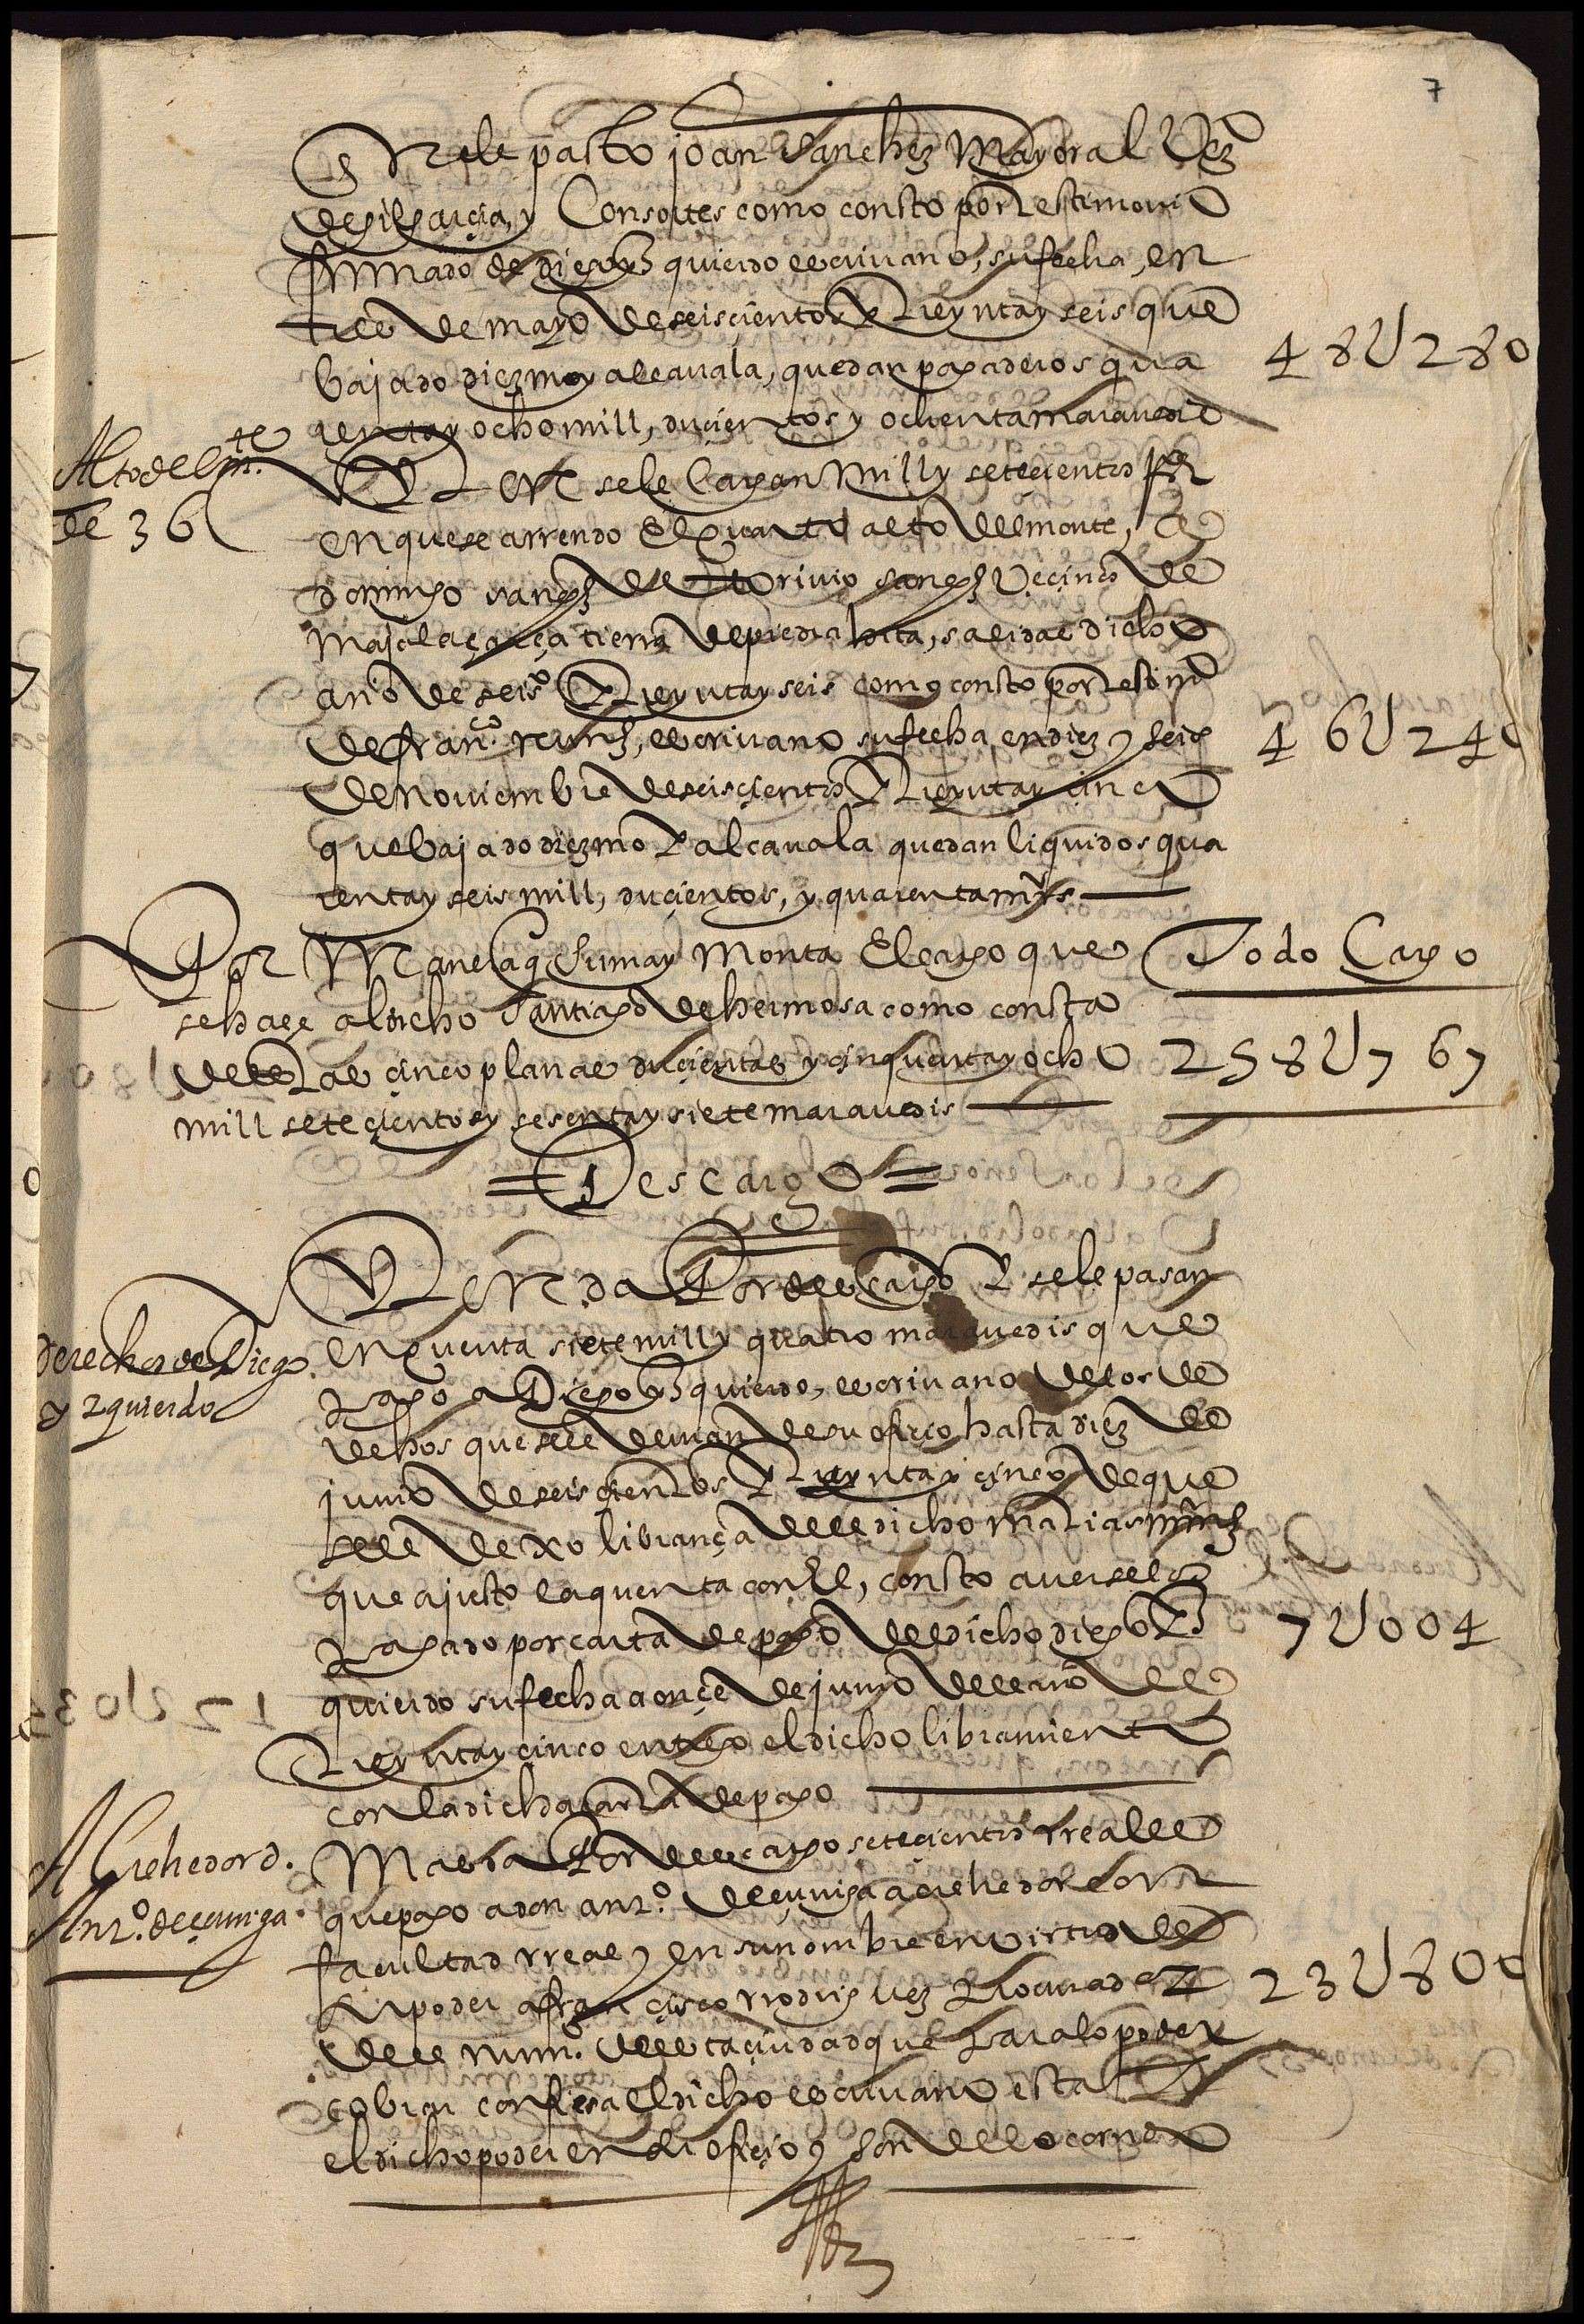 7
en este pasto joan Sanchez Mayoral Vezº
de gil garcia, y Consortes como consto por testimonio
firmado de diego yzquierdo escrivano, su fecha, en
tres de mayo de seiscientos y treynta y seis que
bajado diezmo y alcavala, quedan pagaderos qua
renta y ocho mill, ducientos y ochenta maravedis
48U280
Alto del mte
de 36
Yten se le cargan Mill y setecientos rs
en que se arrendo El quarto alto del monte, a
domingo sanchez de torivio sanchez Vecinos de
Majalaçarça tierra de piedrahita, salidas dicho
año de seisº y treynta y seis como consto por testimº
de franco nuñz, escrivano su fecha en diez y seis
de noviembre de seiscientos y treynta y cinco
que bajado diezmo y alcavala quedan liquidos qua
renta y seis mill, ducientos, y quarenta mrs
46U240
Por Manera q Suma y Monta El cargo que
se haçe al dicho Santiago de hermosa como consta
destas cinco planas ducientas y cinquenta y ocho
mill setecientos y sesenta y siete maravedis
Todo Cargo
258U767
= Descargo =
Derechos de Diego
yzquierdo
Yten da Por descargo y se le pasan
en quenta siete mill y quatro maravedis que
pago a Diego yzquierdo, escrivano de los de
rechos que se le devian de su oficio hasta diez de
junio de seiscientos y treynta y cinco de que
se le dexo librança del dicho matias mrnz
que ajusto la quenta con El, consto averselos
pagado por carta de pago del dicho diego yz
quierdo su fecha a onçe de junio del año de
treynta y cinco entrego el dicho libramiento
con la dicha carta de pago
7U004
A Crehedor d.
Antº. de çuniga
Mas da Por descargo setecientos rreales
que pago a don antº. de çuniga acrehedor con
facultad rreal y en su nombre en virtud de
su poder a francisco rrodriguez Procurador
del numº. desta ciudad que para lo poder
cobrar confiesa El dicho escrivano esta
el dicho poder en su oficio y son de lo corrido
23U800